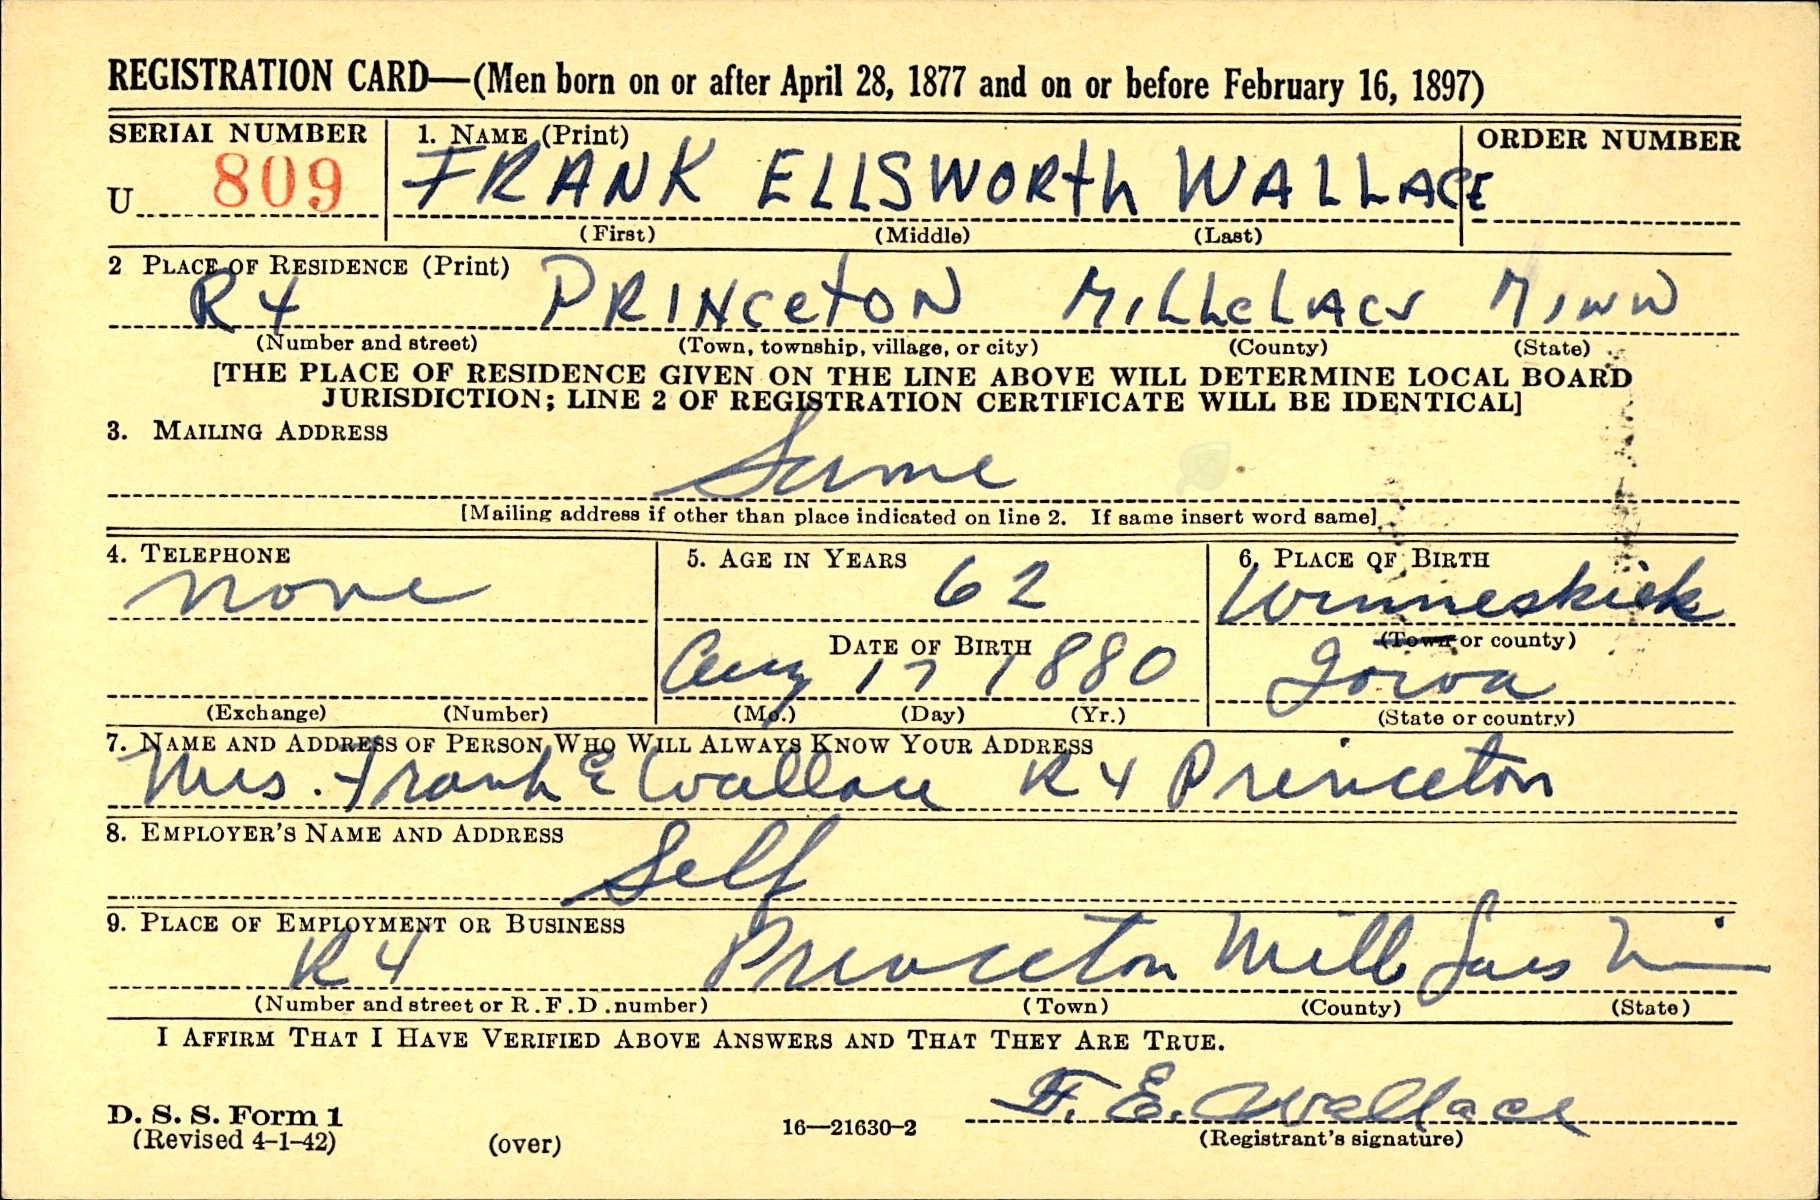 REGISTRATION CARD—(Men born on or after April 28, 1877 and on or before February 16, 1897)
SERIAL NUMBER
1. NAME (Print)
ORDER NUMBER
U 809
FRANK ELLSWORTH WALLACE
(First) (Middle) (Last)
2 PLACE OF RESIDENCE (Print)
R 4 PRINCETON MILLELACS MINN
(Number and street) (Town, township, village, or city) (County) (State)
[THE PLACE OF RESIDENCE GIVEN ON THE LINE ABOVE WILL DETERMINE LOCAL BOARD
JURISDICTION; LINE 2 OF REGISTRATION CERTIFICATE WILL BE IDENTICAL]
3. MAILING ADDRESS
Same
[Mailing address if other than place indicated on line 2. If same insert word same]
4. TELEPHONE
5. AGE IN YEARS
6. PLACE OF BIRTH
none
62
Winneskiek
DATE OF BIRTH
(Town or county)
Aug 17 1880
Iowa
(Exchange) (Number)
(Mo.) (Day) (Yr.)
(State or country)
7. NAME AND ADDRESS OF PERSON WHO WILL ALWAYS KNOW YOUR ADDRESS
Mrs. Frank E Wallace R 4 Princeton
8. EMPLOYER'S NAME AND ADDRESS
Self
9. PLACE OF EMPLOYMENT OR BUSINESS
R 4 Princeton Mille Lacs
(Number and street or R.F.D. number) (Town) (County) (State)
I AFFIRM THAT I HAVE VERIFIED ABOVE ANSWERS AND THAT THEY ARE TRUE.
F. E. Wallace
D. S. S. Form 1
(Revised 4-1-42) (over) 16—21630-2
(Registrant's signature)